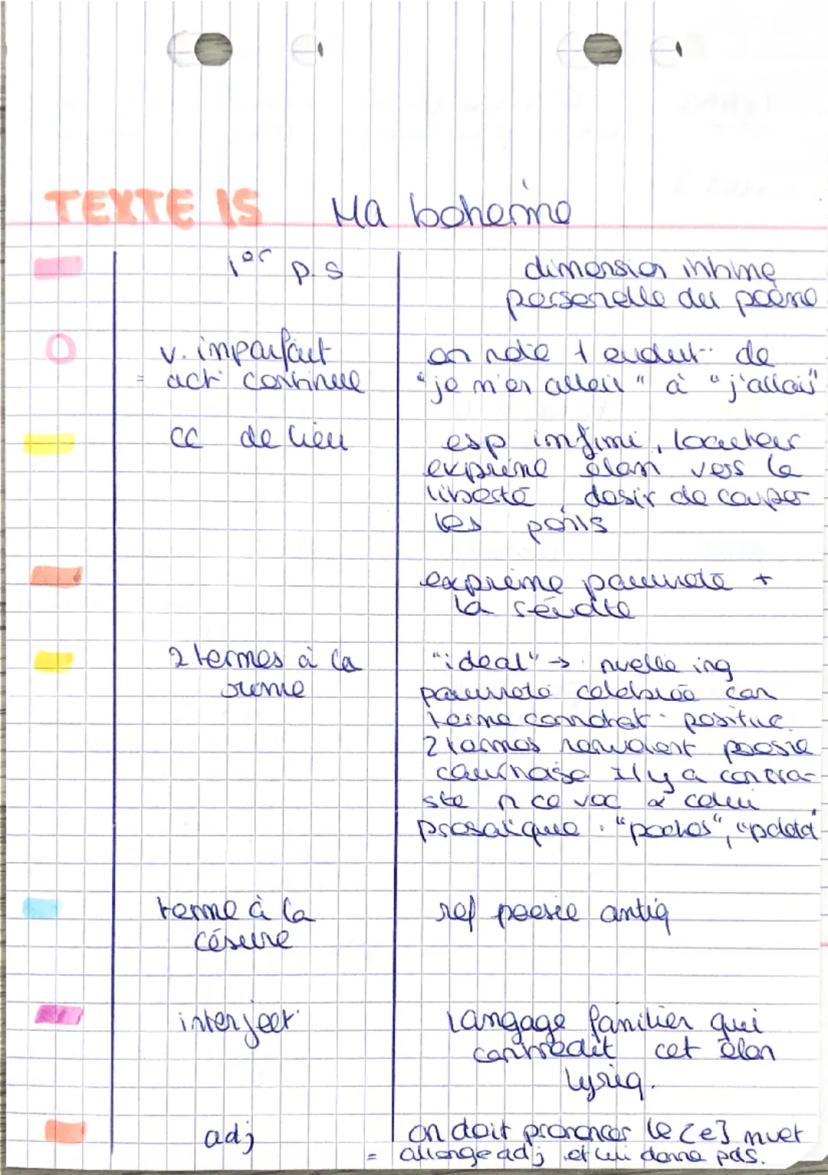 TEXTE 15 Ma boheme
1er p.s dimension intime
personelle du poème
v. imparfait on note 1 evolut° de
= act° continue "je m'en allais" à "j'allais"
cc de lieu esp infini, locuteur
exprime élan vers la
liberté, desir de couper
les ponts
exprime pauvreté +
la
2 termes à la "ideal" →
rime pauvreté celebrée car
terme connotat° positive.
2 termes renvoient poesie
courtoise il y a contra-
ste n ce voc & celui
prosaïque : "poches", "paletot
terme à la ref poesie antiq
césure
interject° langage familier qui
contredit cet élan
lyriq.
adj on doit prononcer le [e] muet
= allonge adj et lui donne pds.